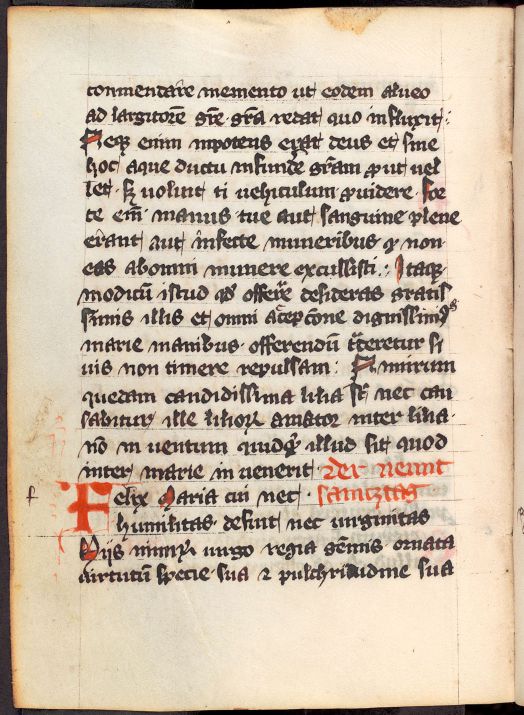 commendare memento ut eodem alueo
ad largitorē grē grā redat quo influxit :
Neqꝫ enim inpotens erat deus et sine
hoc aque ductu infundē grām ꝓut uel
let · sꝫ voluit ti vehiculum ꝓuidere · for
te em̄ manus tue aut sanguine plene
erant aut infecte muneribus qꝫ non
eas ab omni munere excussisti : Itaqꝫ
modicū istud qd̄ offerre desideras gratis
simis illis et omni accepcōne dignissimis
marie manibus · offerendū tradere cura si
uis non timere repulsam : Nimirum
quedam candidissima lilia st̄ nec cau
sabitur ille lilioꝝ amator inter lilia ·
nō inuentum quidqͥd illud sit quod
inter marie inuenerit · der neunt
samtztag
f
Felix Maria cui nec
humilitas · defuit nec uirginitas
uirgo regia gemīs · ornata
uirtutum specie · sua ⁊ pulchritudine sua